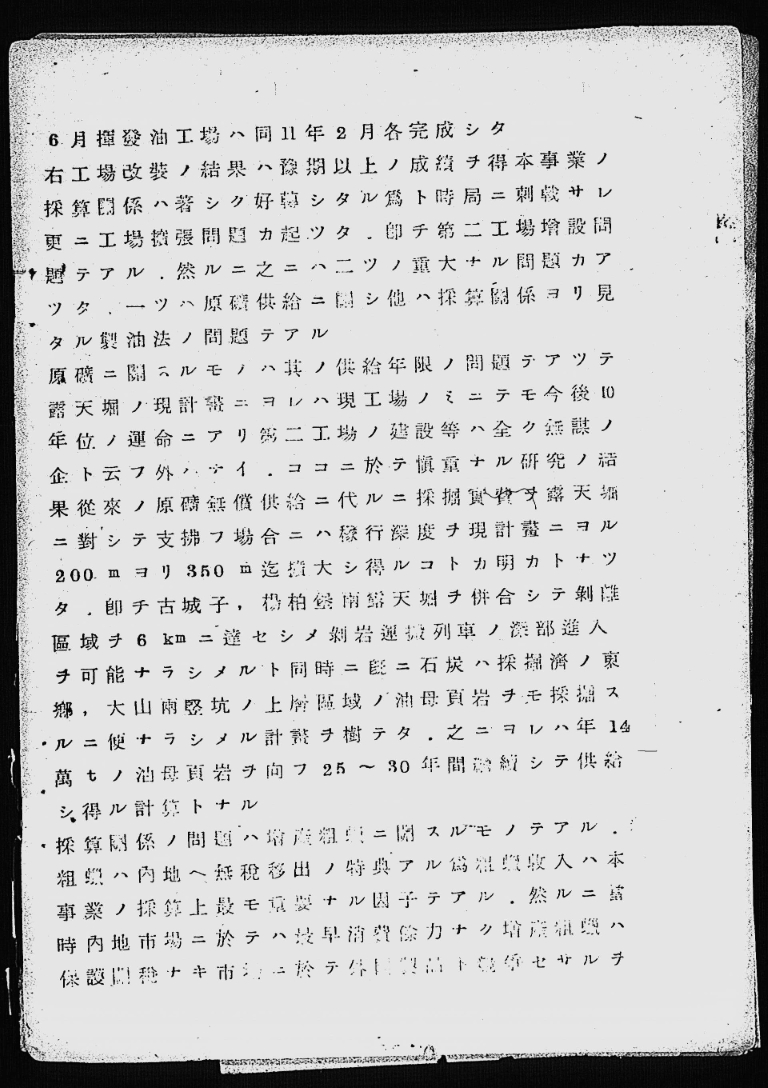 6月揮發油工場ハ同11年2月各完成シタ
右工場改裝ノ結果ハ豫期以上ノ成績ヲ得本事業ノ
採算關係ハ著シク好轉シタル爲ト時局ニ刺戟サレ
更ニ工場擴張問題カ起ツタ.卽チ第二工場增設問
題テアル.然ルニ之ニハ二ツノ重大ナル問題カア
ツタ.一ツハ原礦供給ニ關シ他ハ採算關係ヨリ見
タル製油法ノ問題テアル
原礦ニ關スルモノハ其ノ供給年限ノ問題テアツテ
露天堀ノ現計畫ニヨレハ現工場ノミニテモ今後10
年位ノ運命ニアリ第二工場ノ建設等ハ全ク無謀ノ
企ト云フ外ハナイ.ココニ於テ愼重ナル硏究ノ結
果從來ノ原礦無償供給ニ代ルニ採掘實費ヲ露天堀
ニ對シテ支拂フ場合ニハ稼行深度ヲ現計畫ニヨル
200mヨリ350m迄擴大シ得ルコトカ明カトナツ
タ.卽チ古城子,楊柏堡兩露天堀ヲ併合シテ剝離
區域ヲ6kmニ達セシメ剝岩運搬列車ノ深部進入
ヲ可能ナラシメルト同時ニ旣ニ石炭ハ採掘濟ノ東
鄕,大山兩竪坑ノ上層區域ノ油母頁岩ヲモ採掘ス
ルニ便ナラシメル計畫ヲ樹テタ.之ニヨレハ年14
萬tノ油母頁岩ヲ向フ25～30年間繼續シテ供給
シ得ル計算トナル
採算關係ノ問題ハ增產粗蠟ニ關スルモノテアル.
粗蠟ハ內地ヘ無稅移出ノ特典アル爲粗蠟收入ハ本
事業ノ採算上最モ重要ナル因子テアル.然ルニ當
時內地市場ニ於テハ最早消費餘力ナク增產粗蠟ハ
保護關稅ナキ市場ニ於テ外國製品ト競爭セサルヲ